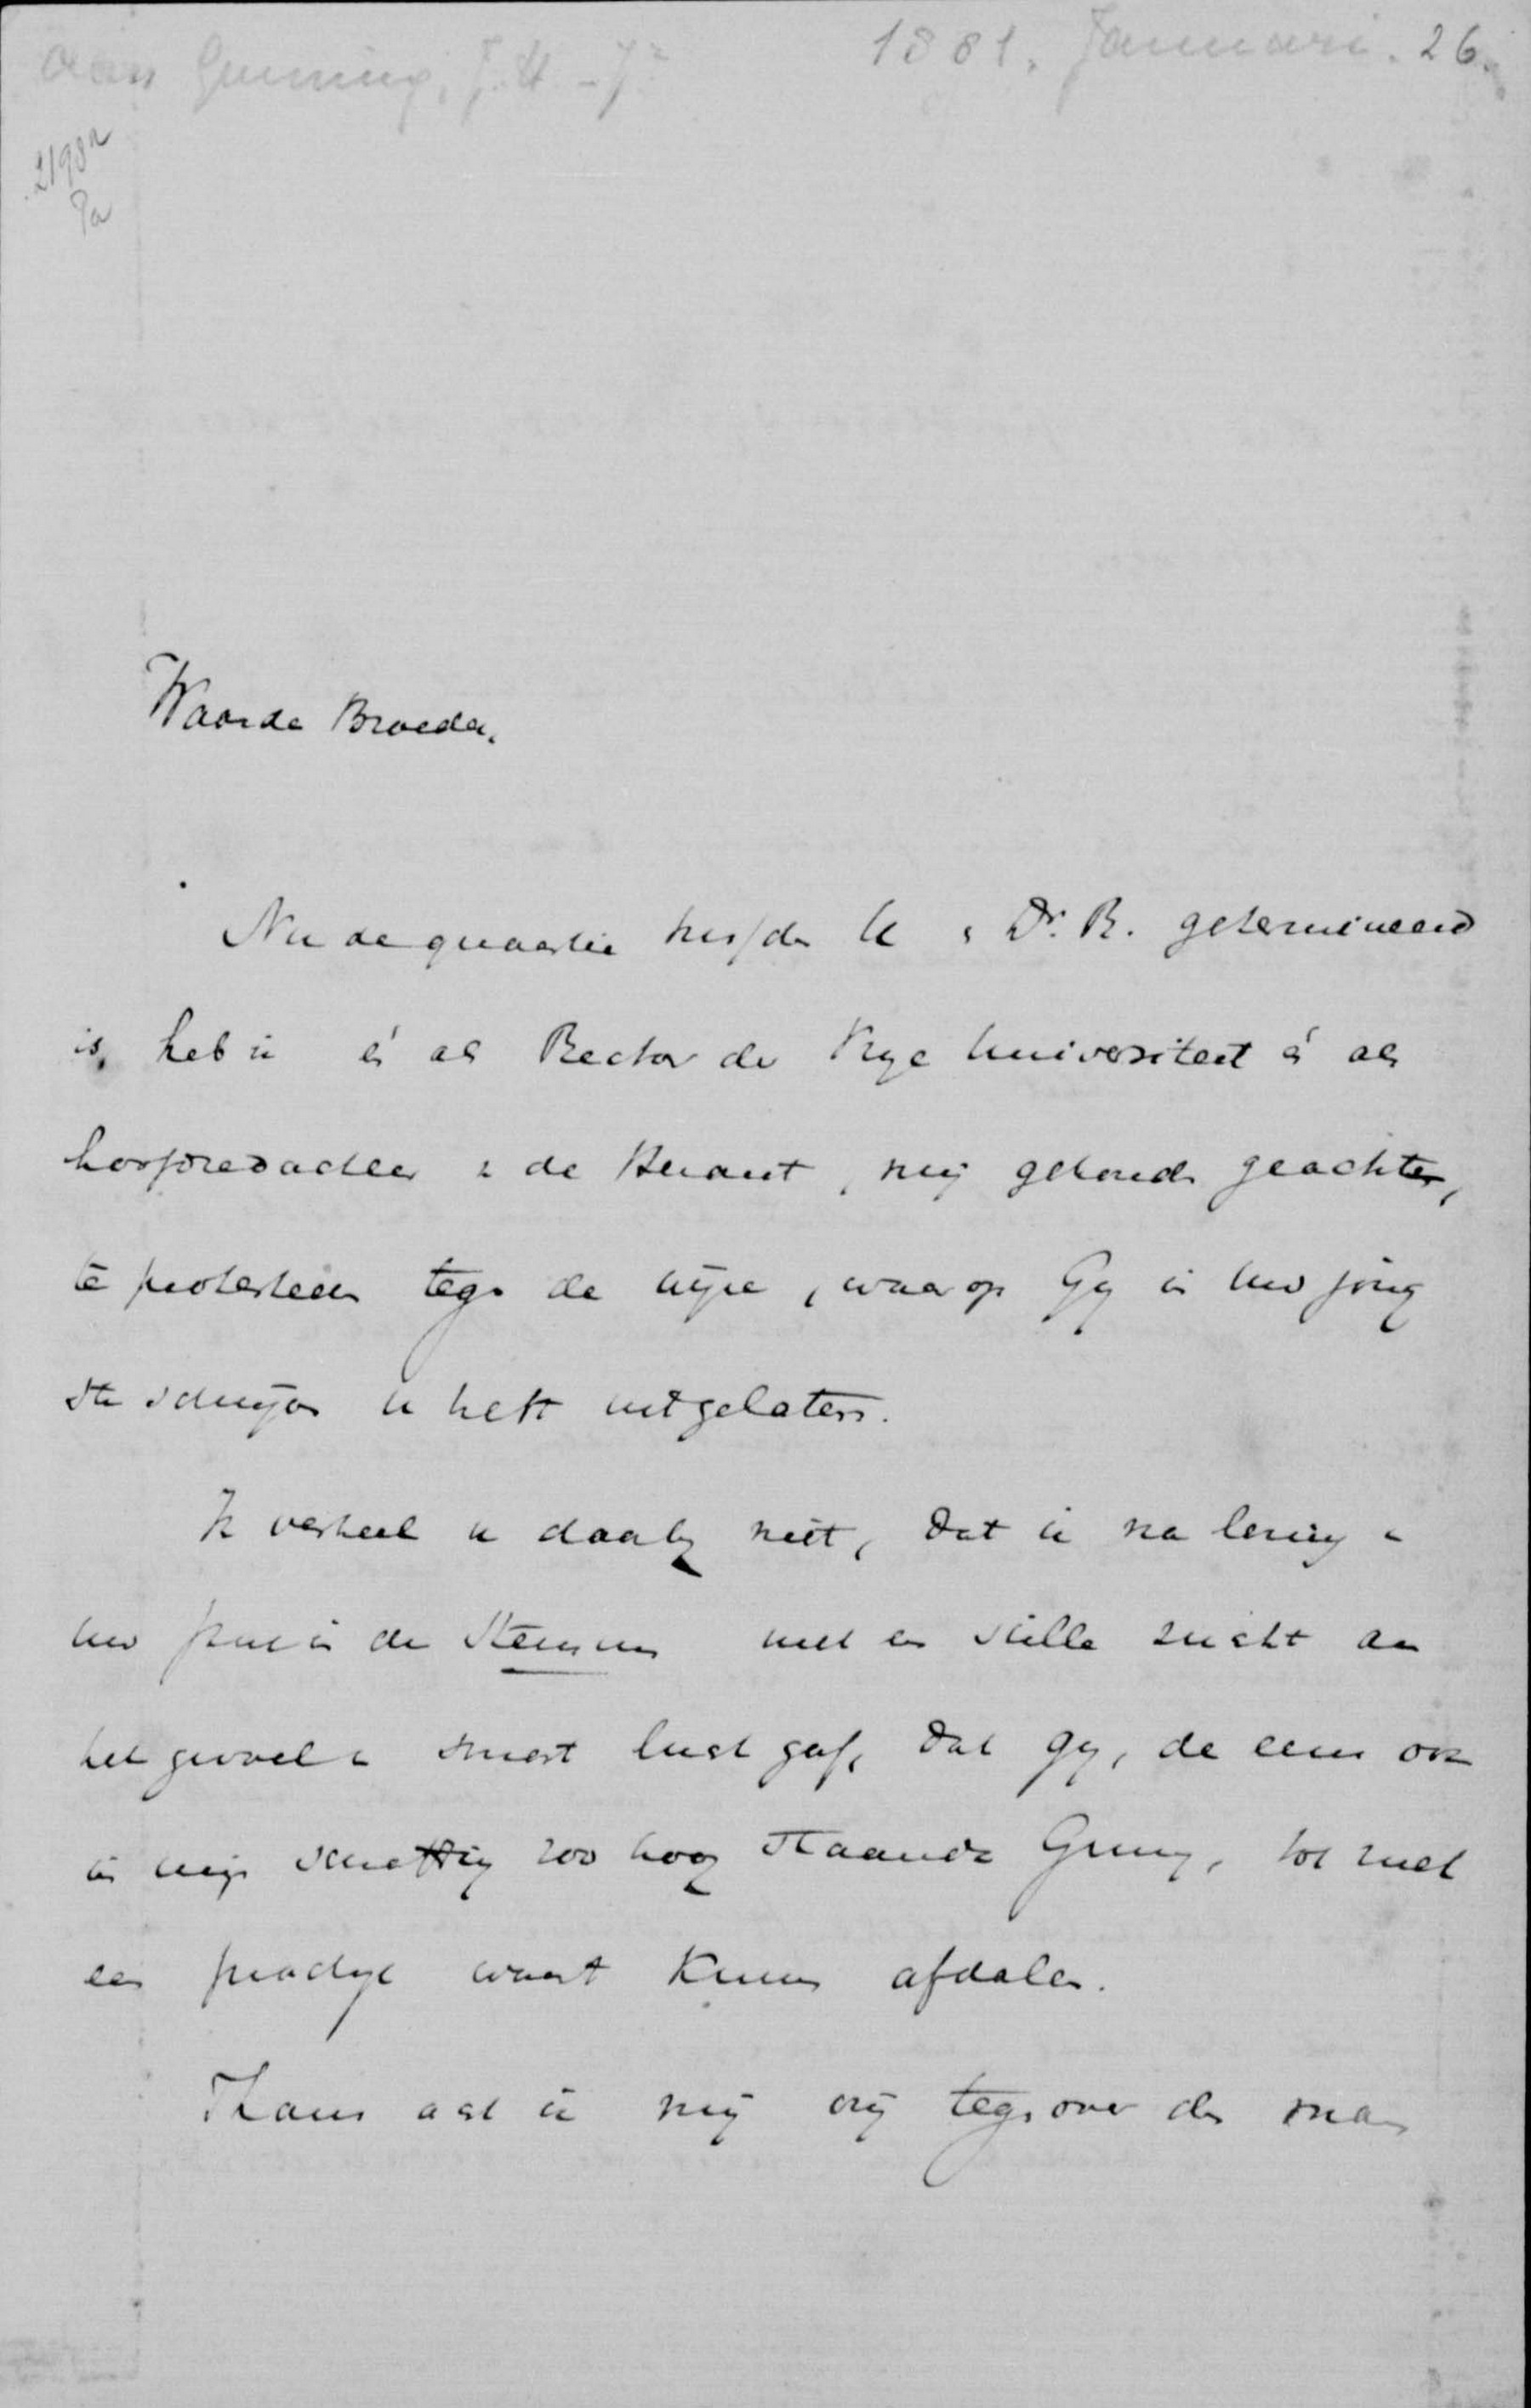 aan Gunning, J.H. - Jr
1881. Januari. 26.
2198a
Pa
Waarde Broeder.
Nu de quaestie tussen U & Dr. R. getermineerd
is, heb ik én als Rector der Vrye Universiteit én als
hoofdredacteur v de Heraut, mij gehouden geachten,
te protesteeren tegen de wijze, waarop Gy in uw jong
ste schrijven U hebt uitgelaten.
Ik verheel u daarby niet, dat ik na lezing v
uw stuk in de Stemmen met een stille zucht aan
het gevoel v smart lucht gaf, dat gy, de eens ook
in mijn schatting zoo hoog staande Gunning, tot zulk
een practyk waart kunnen afdalen.
Thans acht ik mij vrij tegenover den man